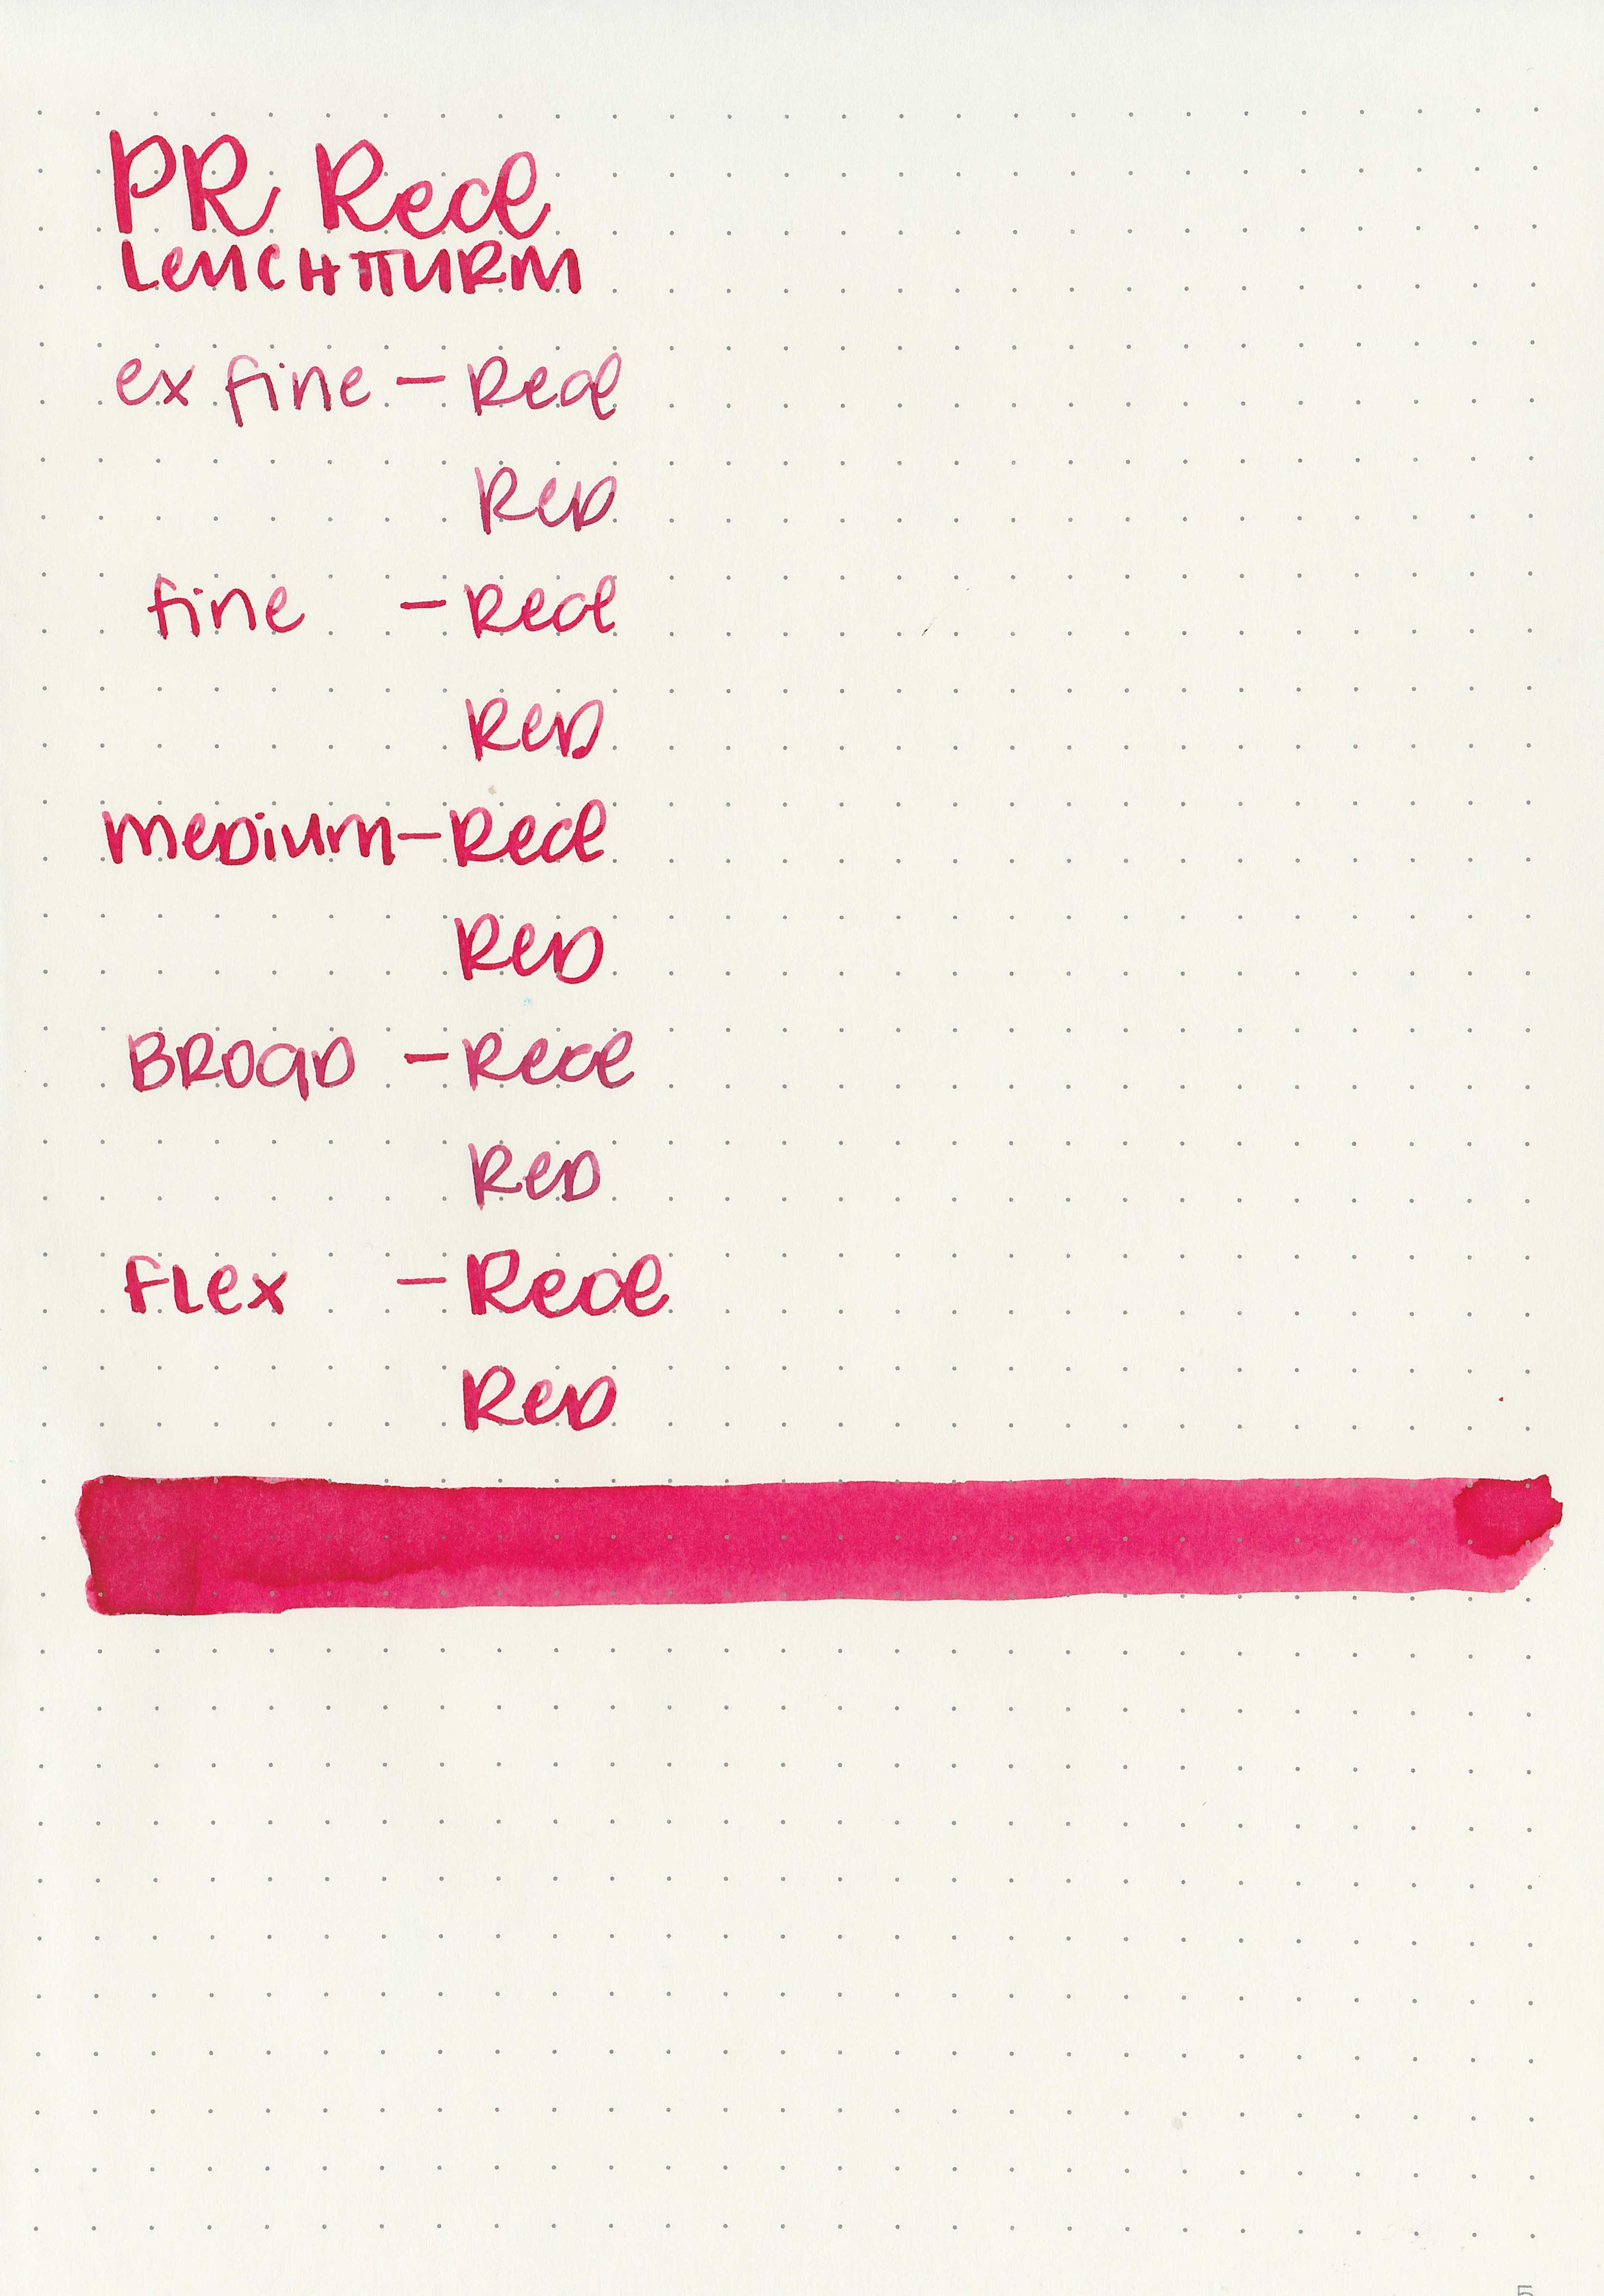 PR Red
LeuCHTTURM
ex fine - Red
ReD
fine - Red
ReD
meDium - Red
ReD
BROaD - Red
ReD
FLex - Red
ReD
5